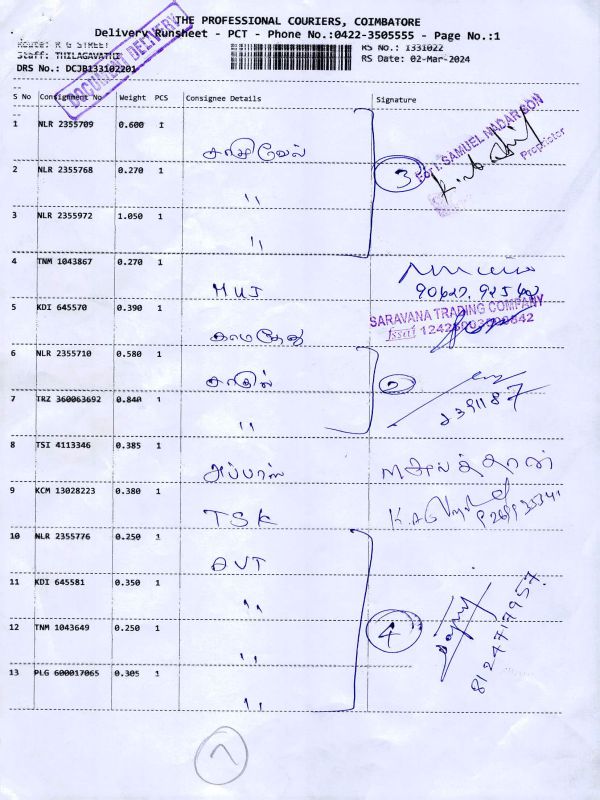 THE PROFESSIONAL COURIERS, COIMBATORE
Delivery Runsheet - PCT - Phone No.:0422-3505555 - Page No.:1
Route: R G STREET
Staff: THILAGAVATHI
DRS No.: DCJB133102201
RS No.: 1331022
RS Date: 02-Mar-2024
DOCUMENT DELIVERY
S No Consignment No Weight PCS Consignee Details Signature
1 NLR 2355709 0.600 1
3
For T. SAMUEL NADAR SON
Proprietor
2 NLR 2355768 0.270 1 ''
3 NLR 2355972 1.050 1 ''
4 TNM 1043867 0.270 1 MUJ
5 KDI 645570 0.390 1 காமதேனு
SARAVANA TRADING COMPANY
fssai
6 NLR 2355710 0.580 1
2
7 TRZ 360063692 0.840 1 ''
8 TSI 4113346 0.385 1 அப்பாஸ்
9 KCM 13028223 0.380 1 TSK
10 NLR 2355776 0.250 1 AVT
11 KDI 645581 0.350 1 ''
4
8124717957
12 TNM 1043649 0.250 1 ''
13 PLG 600017065 0.305 1 ''
7